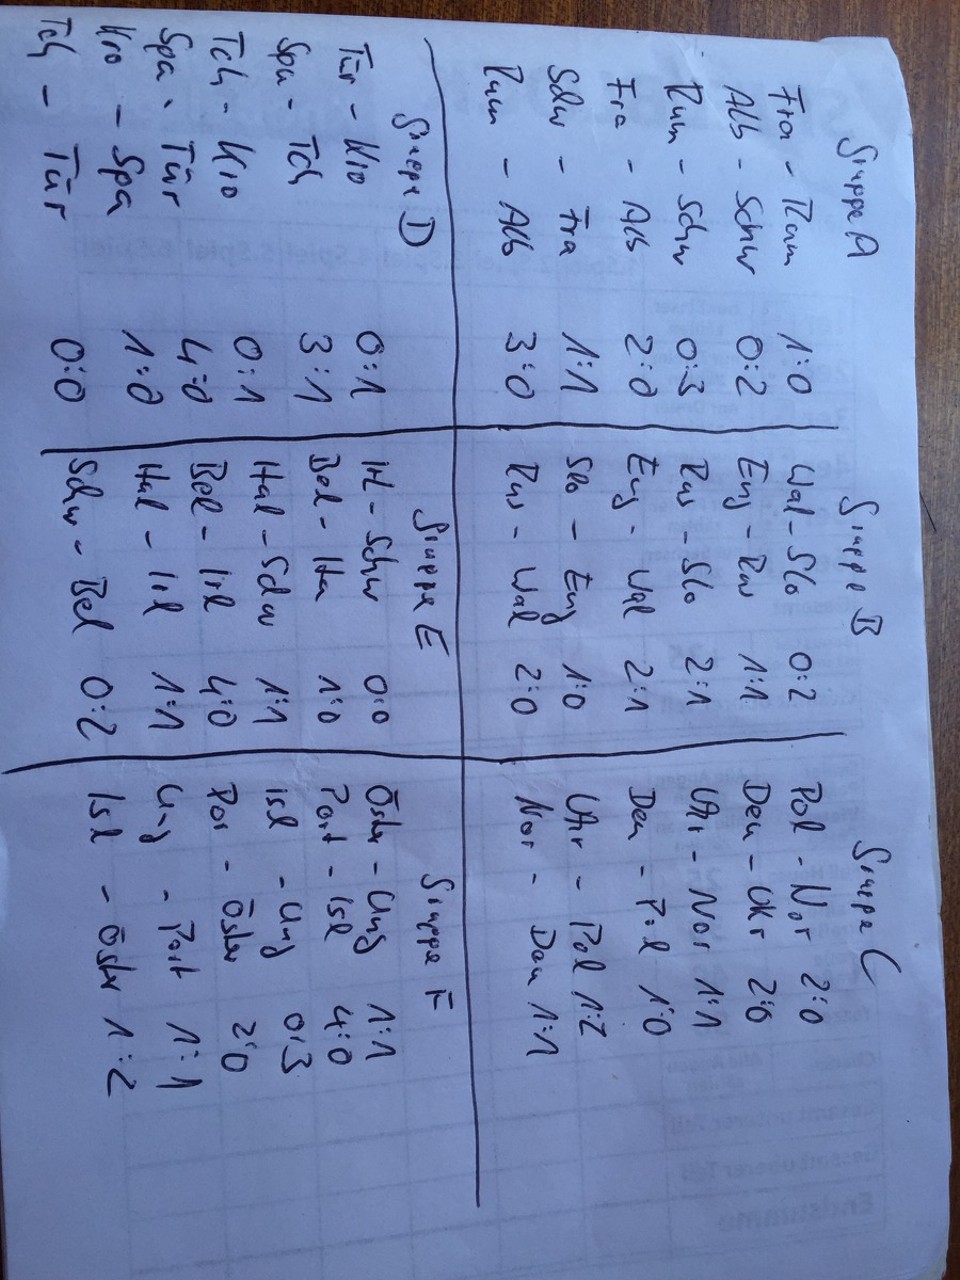 Gruppe A
Fra - Rum 1:0
Alb - Schw 0:2
Rum - Schw 0:3
Fra - Alb 2:0
Schw - Fra 1:1
Rum - Alb 3:0
Gruppe B
Wal - Slo 0:2
Eng - Rus 1:1
Rus - Slo 2:1
Eng - Wal 2:1
Slo - Eng 1:0
Rus - Wal 2:0
Gruppe C
Pol - Nor 2:0
Deu - Ukr 2:0
Ukr - Nor 1:1
Deu - Pol 1:0
Ukr - Pol 1:2
Nor - Deu 1:1
Gruppe D
Tür - Kro 0:1
Spa - Tch 3:1
Tch - Kro 0:1
Spa - Tür 4:0
Kro - Spa 1:0
Tch - Tür 0:0
Gruppe E
Irl - Schw 0:0
Bel - Ita 1:0
Ital - Schw 1:1
Bel - Irl 4:0
Ital - Irl 1:1
Schw - Bel 0:2
Gruppe F
Östr - Ung 1:1
Port - Isl 4:0
isl - Ung 0:3
Por - Östr 2:0
Ung - Port 1:1
Isl - Östr 1:2